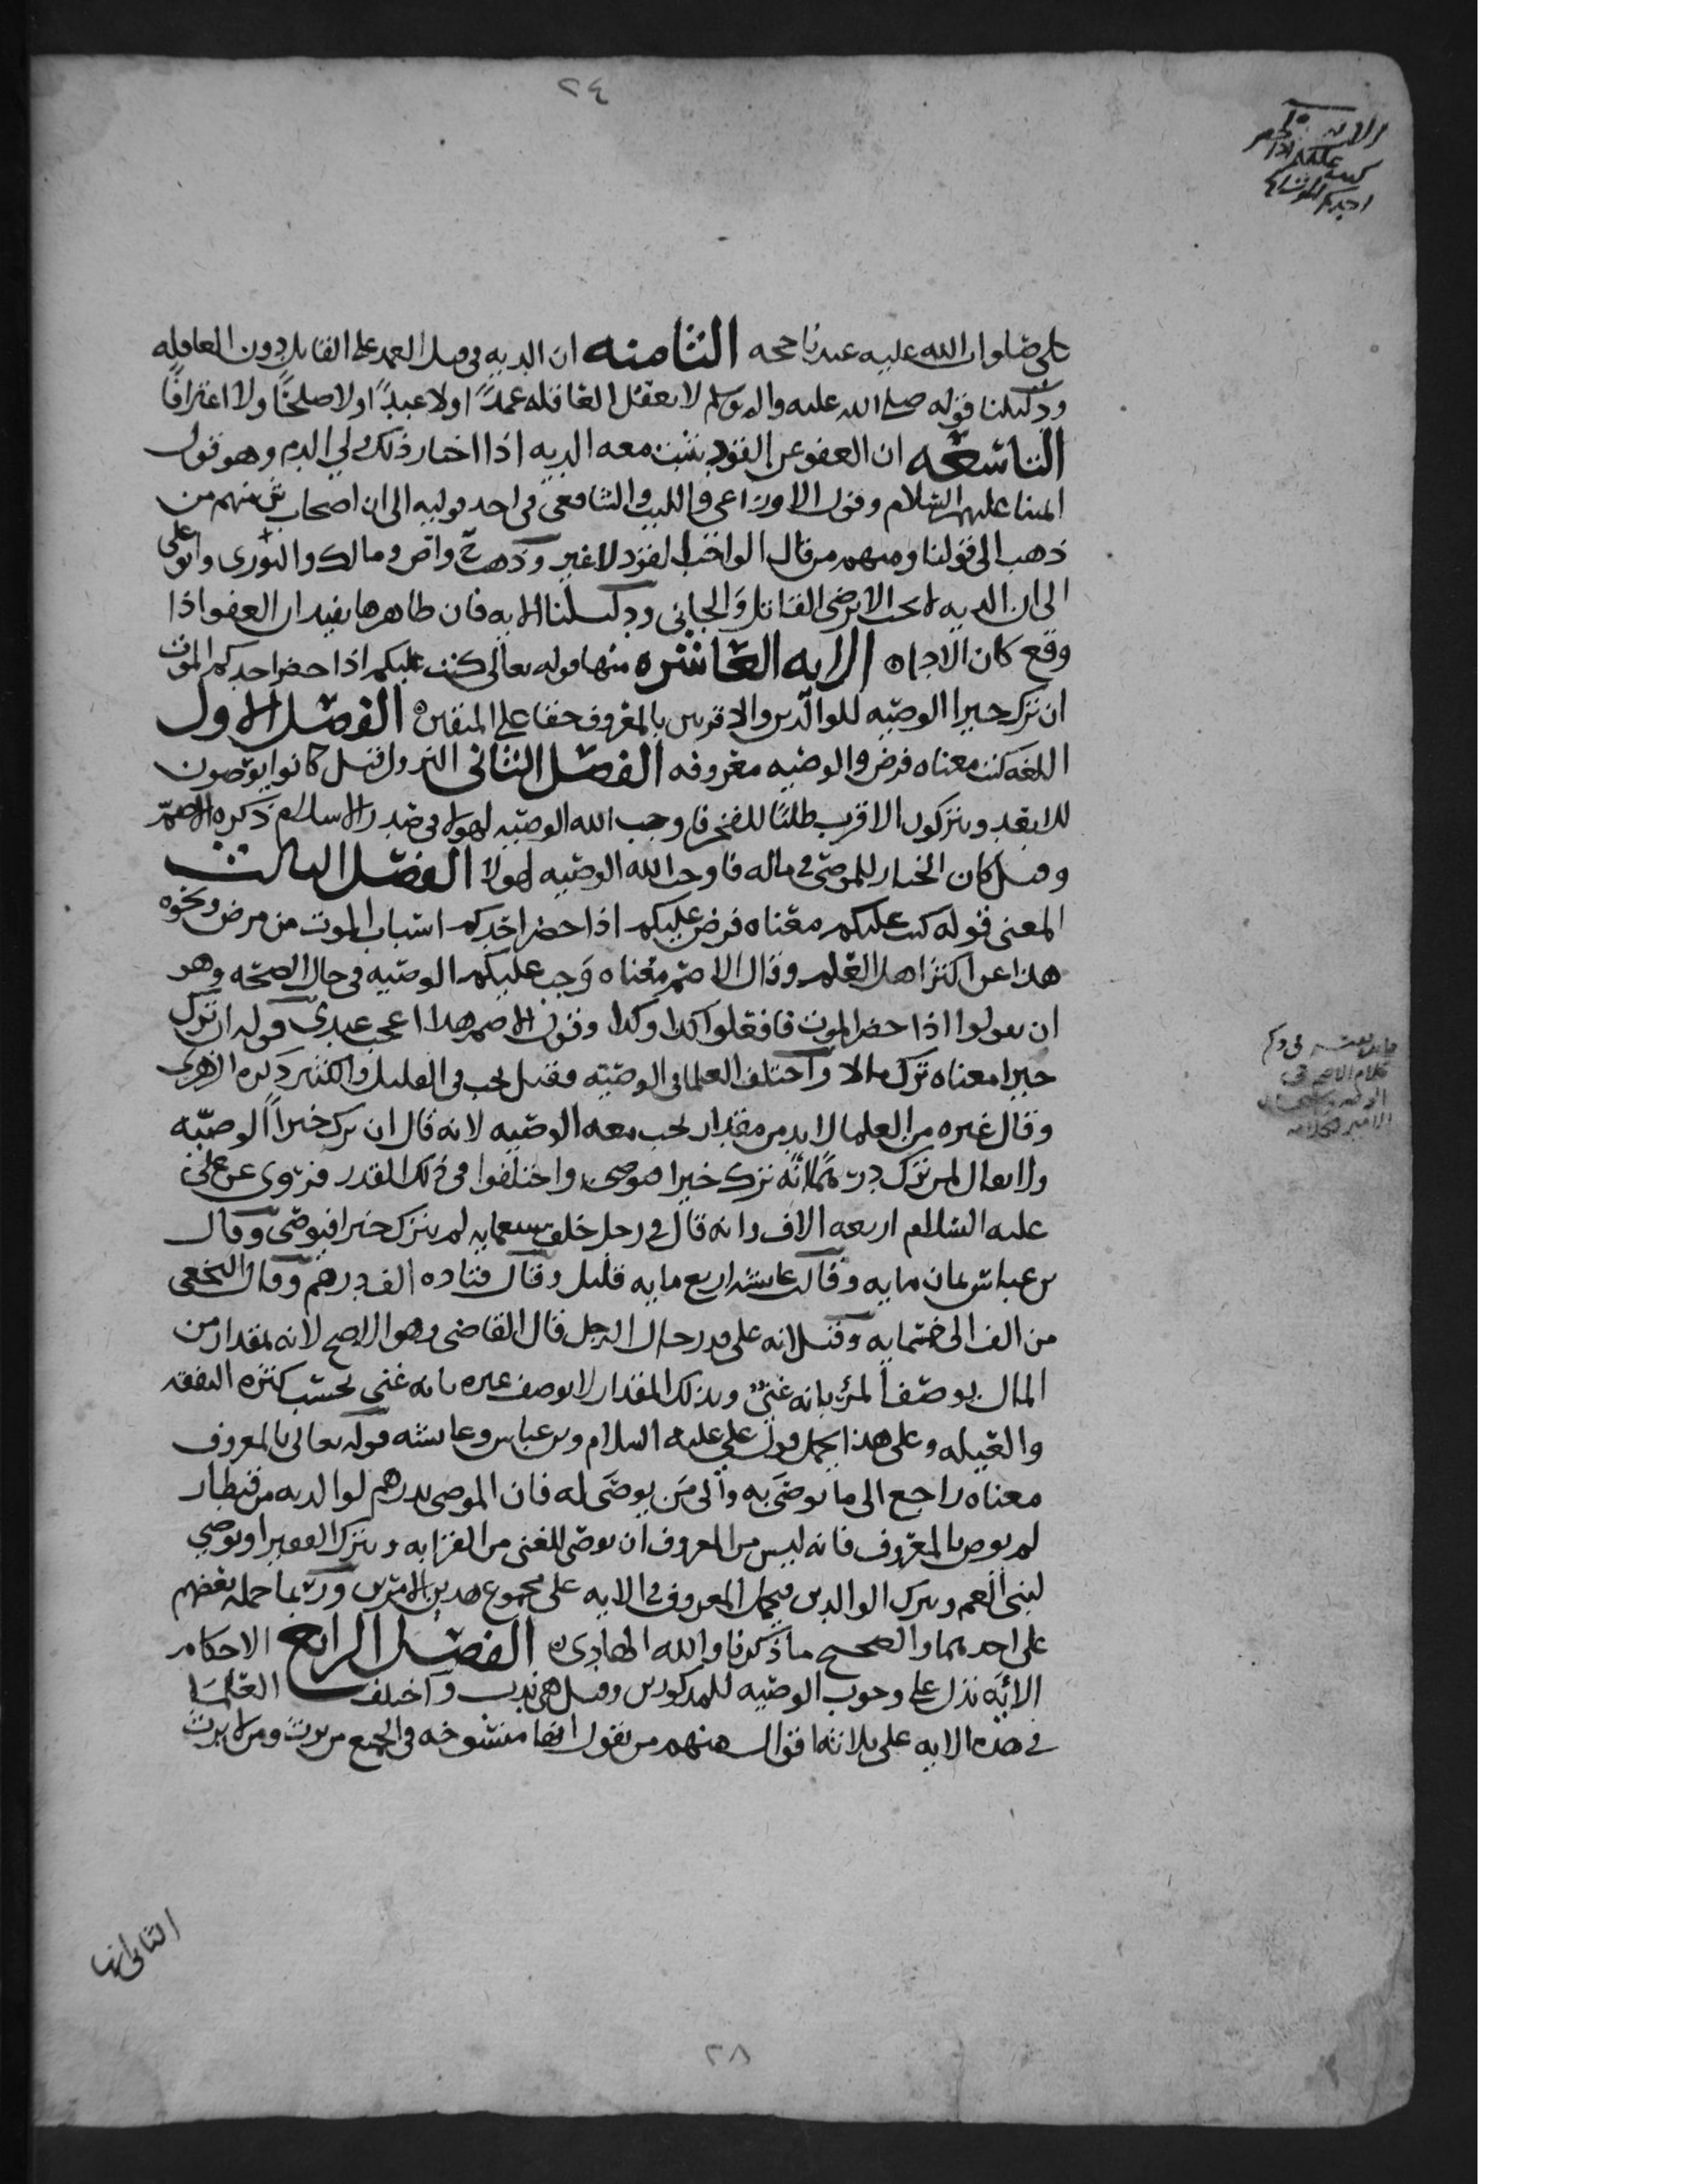 ٢٤
الآية
كتب عليكم اذا حضر
احدكم الموت
علي صلوات الله عليه عندنا حجه الثامنه ان الديه في قتل العمد على القاتل دون العاقله
ودليلنا قوله صلى الله عليه واله وسلم لا تعقل العاقله عمدًا ولا عبدًا ولا صلحًا ولا اعترافًا
التاسعه ان العفو عن القود يثبت معه الديه اذا اختار ذلك ولي الدم وهو قول
ائمتنا عليهم السلام وقول الاوزاعي والليث والشافعي في احد قوليه الا ان اصحاب ش منهم من
ذهب الى قولنا ومنهم من قال الواجب القود لا غير وذهب ح واص ومالك والثوري وابو علي
الى ان الديه لا تجب الا برضى القاتل والجاني ودليلنا الايه فان ظاهرها يفيد ان العفو اذا
وقع كان الاداه الايه العاشره منها قوله تعالى كتب عليكم اذا حضر احدكم الموت
ان ترك خيرا الوصيه للوالدين والاقربين بالمعروف حقا على المتقين ه الفصل الاول
اللغه كتب معناه فرض والوصيه معروفه الفصل الثاني النزول قيل كانوا يوصون
للابعد ويتركون الاقرب طلبًا للفخر فاوجب الله الوصيه لهولا في صدر الاسلام ذكره الاصم
وقيل كان الخيار للموصي في ماله فاوجب الله الوصيه لهولا الفصل الثالث
المعنى قوله كتب عليكم معناه فرض عليكم اذا حضر احدكم اسباب الموت من مرض ونحوه
هذا عن اكثر اهل العلم وقال الاصم معناه وجب عليكم الوصيه في حال الصحه وهو
ان تقولوا اذا حضر الموت فافعلوا كذا وكذا وقول الاصم هذا اعجب عندي قوله ان ترك
خيرا معناه ترك مالا واختلف العلما في الوصيه فقيل تجب في القليل والكثير ذكره الزهري
وقال غيره من العلما لا بد من مقدار تجب معه الوصيه لانه قال ان ترك خيراً الوصيّه
ولا يقال لمن ترك درهمًا انه ترك خيرا فيوصي واختلفوا في ذلك القدر فروي عن علي
عليه السلام اربعه الاف وانه قال في رجل خلف سبعمايه لم يترك خيرا فيوصي وقال
بن عباس ثمان مايه وقالت عائشه اربع مايه قليل وقال قتاده الف درهم وقال النخعي
من الف الى خمسمايه وقيل انه على قدر حال الرجل قال القاضي وهو الاصح لانه بمقدار من
المال يوصف المرء بانه غنيٌ وبذلك المقدار لا يوصف غيره بانه غني بحسب كثره النفقه
والعيله وعلى هذا يحمل قول علي عليه السلام وبن عباس وعائشه قوله تعالى بالمعروف
معناه راجع الى ما يوصَى به والى مَن يوصَى له فان الموصي بدرهم لوالديه من قنطار
لم يوص بالمعروف فانه ليس من المعروف ان يوصي للغني من القرابه ويترك الفقير او يوصي
لبني العم ويترك الوالدين فيحمل المعروف في الايه على مجموع هذين الامرين وربما حمله بعضهم
على احدهما والصحيح ما ذكرنا والله الهادي ه الفصل الرابع الاحكام
الايَه تدل على وجوب الوصيه للمذكورين وقيل هي ندب واختلف العلما
في هذه الايه على ثلاثه اقوال منهم من يقول انها منسوخه في الجميع من يرث ومن لا يرث
كلام الاصم في
الثاني انها
٢٨